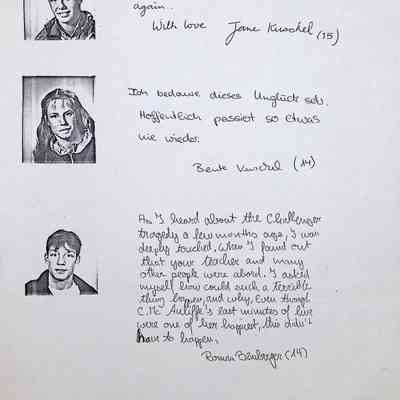 again..
With love Jane Kuschel (15)
Ich bedaure dieses Unglück seh.
Hoffentlich passiert so etwas
nie wieder.
Bente Kuschel (14)
As I heard about the Challenger
tragedy a few months ago, I was
deeply touched. When I found out
that your teacher and many
other people were abord. I asked
myself how could such a terrible
thing happen, and why. Even though
C. Mc Auliffe's last minutes of live
were one of her happiest, this didn't
have to happen.
Roman (14)